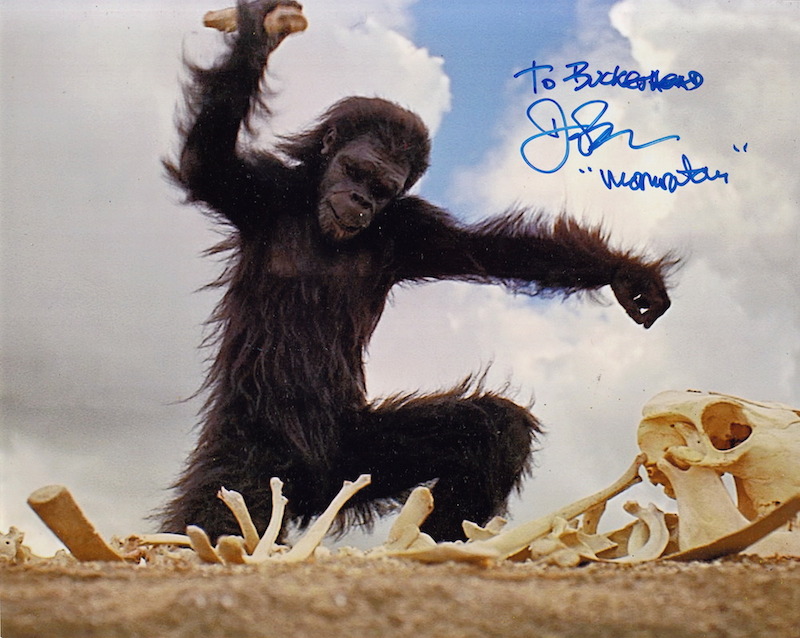 To Buckethead
"Moonwatcher"